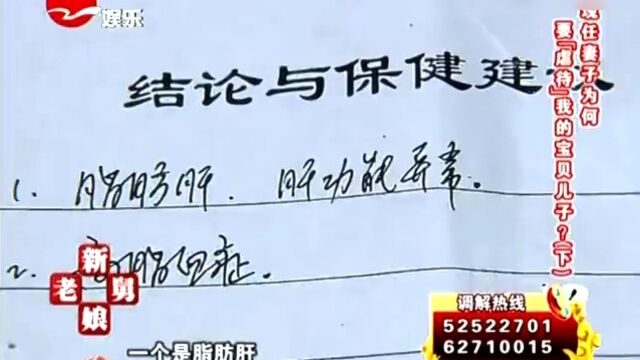 娱乐
结论与保健建议
1. 脂肪肝. 肝功能异常。
2. 高脂血症。
现任妻子为何
要「虐待」我的宝贝儿子?(下)
新老娘舅
调解热线
52522701
62710015
一个是脂肪肝